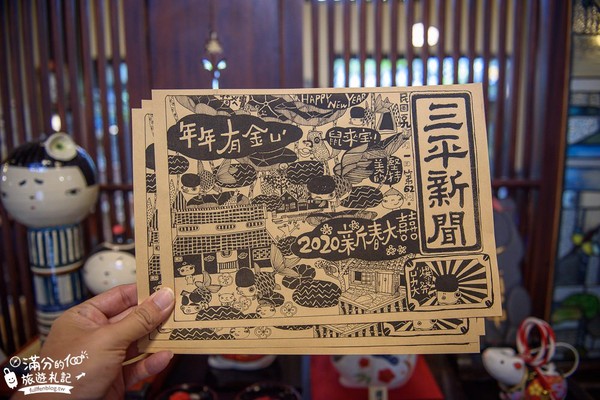 HAPPY NEW YEAR
年年有金山
鼠來寶
2020新春大囍
三平新聞
滿分的
旅遊札記
fullfenblog.tw